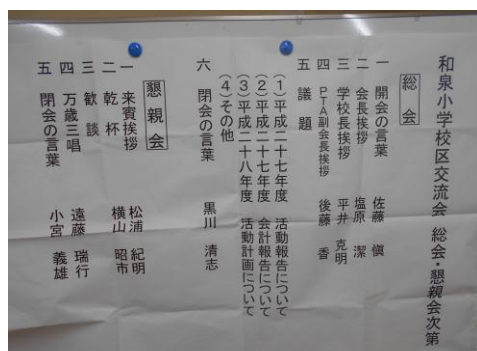 和泉小学校区交流会 総会・懇親会次第
総会
一 開会の言葉 佐藤 愼
二 会長挨拶 塩原 潔
三 学校長挨拶 平井 克明
四 PTA副会長挨拶 後藤 香
五 議題
(1)平成二十七年度 活動報告について
(2)平成二十七年度 会計報告について
(3)平成二十八年度 活動計画について
(4)その他
六 閉会の言葉 黒川 清志
懇親会
一 来賓挨拶 松浦 紀明
二 乾杯 横山 昭市
三 歓談
四 万歳三唱 遠藤 瑞行
五 閉会の言葉 小宮 義雄